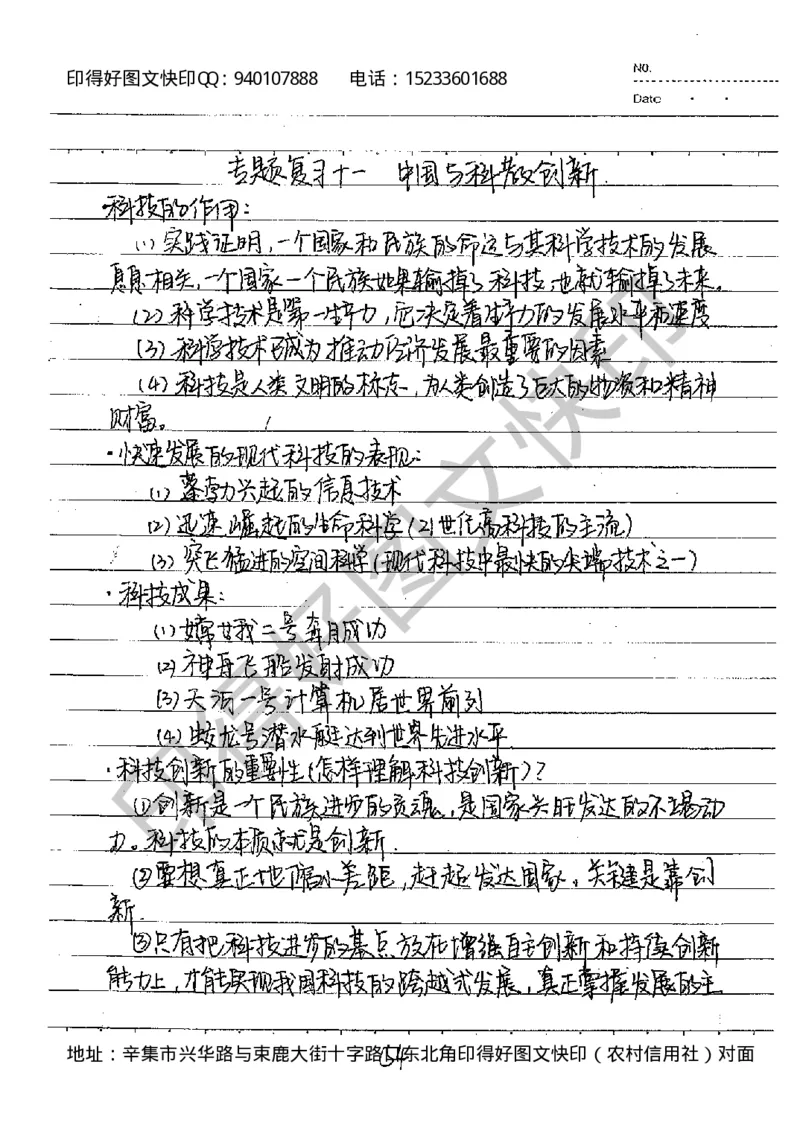 印得好图文快印QQ：940107888 电话：15233601688
No.
Date
专题复习十一 中国与科教创新
·科技的作用：
(1)实践证明，一个国家和民族的命运与其科学技术的发展
息息相关，一个国家一个民族如果输掉了科技，也就输掉了未来。
(2)科学技术是第一生产力，它决定着生产力的发展水平和速度
(3)科学技术已成为推动经济发展最重要的因素
(4)科技是人类文明的标志，为人类创造了巨大的物质和精神
财富。
·快速发展的现代科技的表现：
(1)蓬勃兴起的信息技术
(2)迅速崛起的生命科学(21世纪高科技的主流)
(3)突飞猛进的空间科学(现代科技中最快的尖端技术之一)
·科技成果：
(1)嫦娥二号奔月成功
(2)神舟飞船发射成功
(3)天河一号计算机居世界前列
(4)蛟龙号潜水艇达到世界先进水平
·科技创新的重要性(怎样理解科技创新)？
①创新是一个民族进步的灵魂，是国家兴旺发达的不竭动
力。科技的本质就是创新.
②要想真正地缩小差距，赶超发达国家，关键是靠创
新.
③只有把科技进步的基点放在增强自主创新和持续创新
能力上，才能实现我国科技的跨越式发展，真正掌握发展的主
地址：辛集市兴华路与束鹿大街十字路口东北角印得好图文快印（农村信用社）对面
54
印得好图文快印